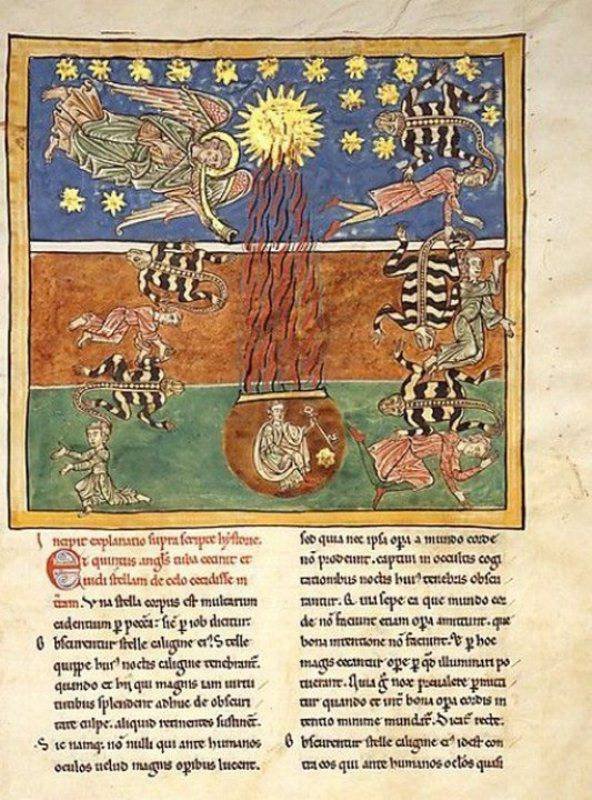 Incipit explanatio supra scripte hystorie.
Et quintus angls tuba cecinit et
uidi stellam de celo cecidisse in
tram. Vna stella corpus est multarum
cadentium p pecca: sic p iob dicitur.
Obscurentur stelle caligine ei'. Stelle
quippe hui' noctis caligine tenebrant.
quando et hij qui magnis iam uirtu
tibus splendent adhuc de obscuri
tate culpe. aliquid retinentes sustinet.
Sic namq; nō nulli qui ante humanos
oculos uelud magnis opibus lucent.
sed quia nec ipsa opa a mundo corde
nō prodeunt. captiui in occultis cogi
tationibus noctis hui' tenebris obscu
rantur. sepe ea que mundo cor
de nō faciunt etiam opa amittunt. que
bona intentione nō faciunt. p hoc
magis cecantur ope p qd illuminari po
tuerant. Quia nox preualere pmitti
tur quando et int bona opa cordis in
tentio minime mundat. Dicat recte.
Obscurentur stelle caligine ei' idest con
tra eos qui ante humanos oclos quasi